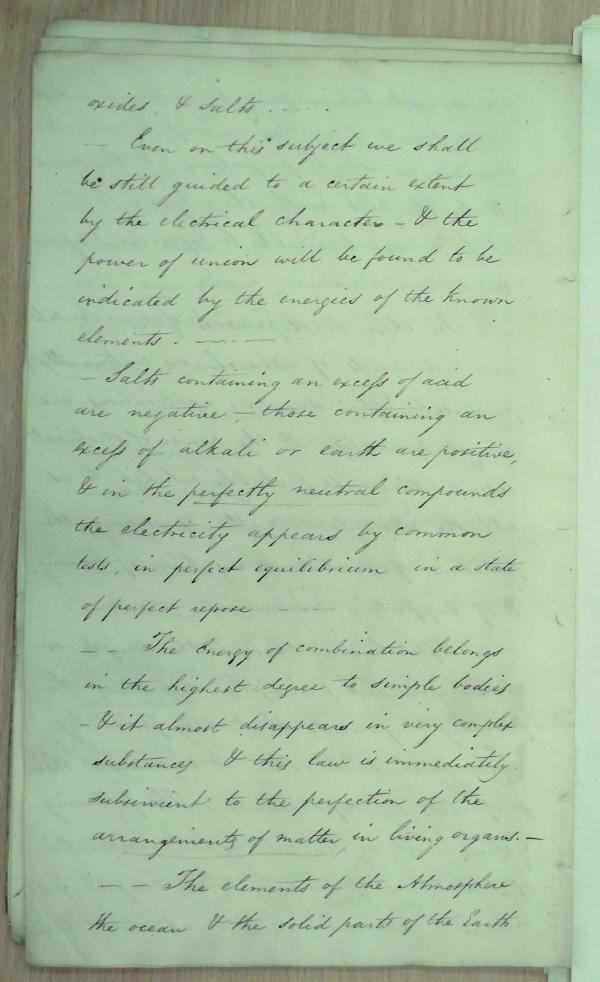 oxides, & Salts. - - - .
- Even on this subject we shall
be still guided to a certain extent
by the electrical character - & the
power of union will be found to be
indicated by the energies of the known
elements. - - - -
- Salts containing an excess of acid
are negative - those containing an
excess of alkali or earth are positive,
& in the perfectly neutral compounds
the electricity appears by common
tests, in perfect equilibrium in a state
of perfect repose - - -
- - The Energy of combination belongs
in the highest degree to simple bodies
- & it almost disappears in very complex
substances & this law is immediately
subservient to the perfection of the
arrangements of matter, in living organs. -
- - The elements of the Atmosphere
the ocean & the solid parts of the Earth